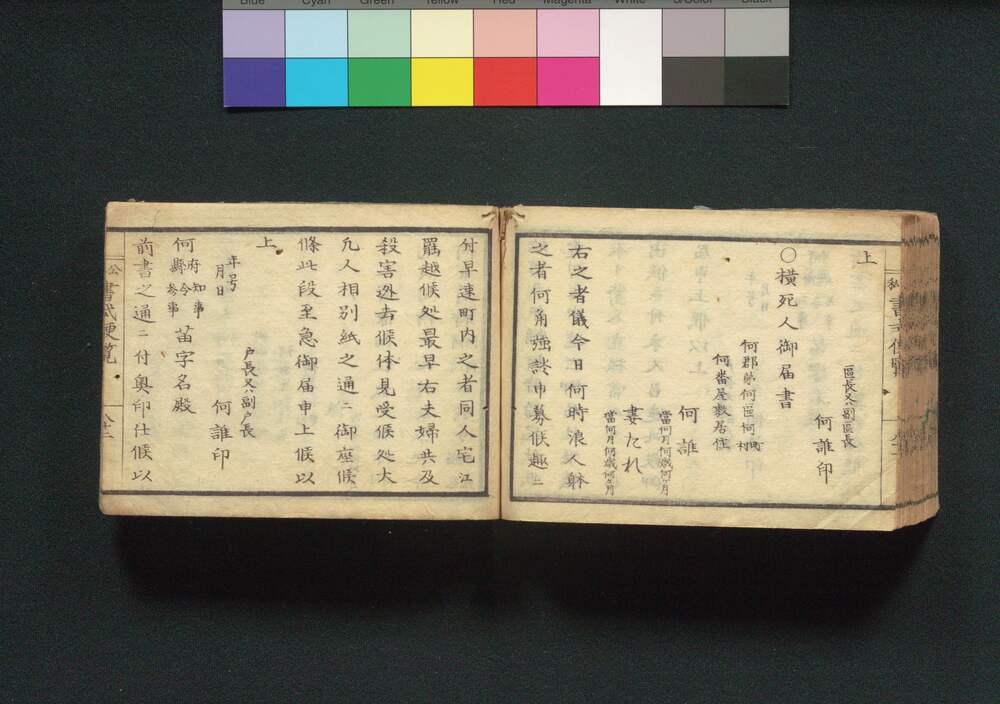 Blue Cyan Green Yellow Red Magenta White 3/Color Black
上
區長又ハ副區長
何誰印
○横死人御届書
何郡第何區何町村
何番屋敷居住
何誰
當何月何歳何ヶ月
妻たれ
當何月何歳何ヶ月
右之者儀今日何時浪人躰
之者何角強談申募候趣ニ
付早速町内之者同人宅江
罷越候処最早右夫婦共及
殺害迯去候体見受候処大
凢人相別紙之通ニ御座候
條此段至急御届申上候以
上
年号
月日
戸長又ハ副戸長
何誰印
何府縣知事令参事苗字名殿
前書之通ニ付奥印仕候以
公
書式便覧